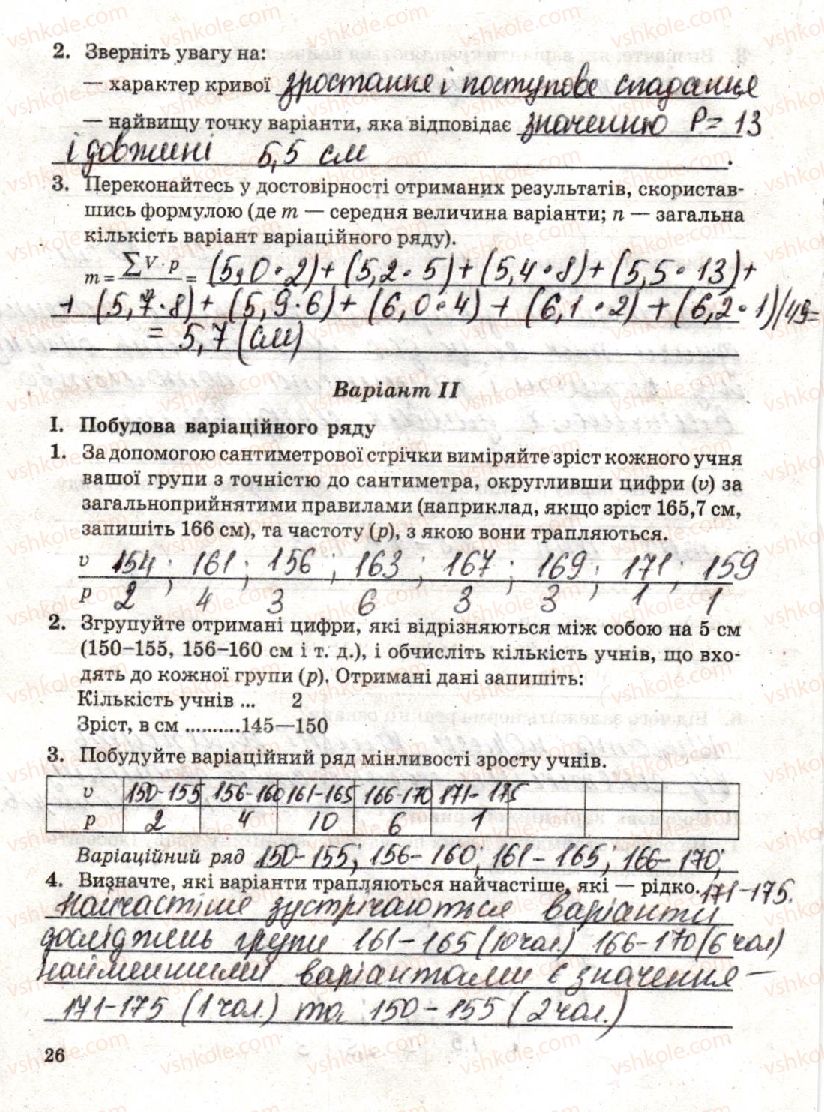 2. Зверніть увагу на:
— характер кривої зростання і поступове спадання
— найвищу точку варіанти, яка відповідає значенню P = 13
і довжині 5,5 см.
3. Переконайтесь у достовірності отриманих результатів, скористав-
шись формулою (де m — середня величина варіанти; n — загальна
кількість варіант варіаційного ряду).
m = ∑V·p/n = (5,0·2)+(5,2·5)+(5,4·8)+(5,5·13)+
+(5,7·8)+(5,9·6)+(6,0·4)+(6,1·2)+(6,2·1)/49=
= 5,7 (см)
Варіант II
I. Побудова варіаційного ряду
1. За допомогою сантиметрової стрічки виміряйте зріст кожного учня
вашої групи з точністю до сантиметра, округливши цифри (v) за
загальноприйнятими правилами (наприклад, якщо зріст 165,7 см,
запишіть 166 см), та частоту (p), з якою вони трапляються.
v 154; 161; 156; 163; 167; 169; 171; 159
p 2 4 3 6 3 3 1 1
2. Згрупуйте отримані цифри, які відрізняються між собою на 5 см
(150–155, 156–160 см і т. д.), і обчисліть кількість учнів, що вхо-
дять до кожної групи (p). Отримані дані запишіть:
Кількість учнів ... 2
Зріст, в см ..........145—150
3. Побудуйте варіаційний ряд мінливості зросту учнів.
v 150-155 156-160 161-165 166-170 171-175
p 2 4 10 6 1
Варіаційний ряд 150-155; 156-160; 161-165; 166-170;
4. Визначте, які варіанти трапляються найчастіше, які — рідко. 171-175.
Найчастіше зустрічаються варіанти
досліджень групи 161-165 (10 чол) 166-170 (6 чол)
найменшими варіантами є значення —
171-175 (1 чол.) та 150-155 (2 чол.)
26
vshkole.com